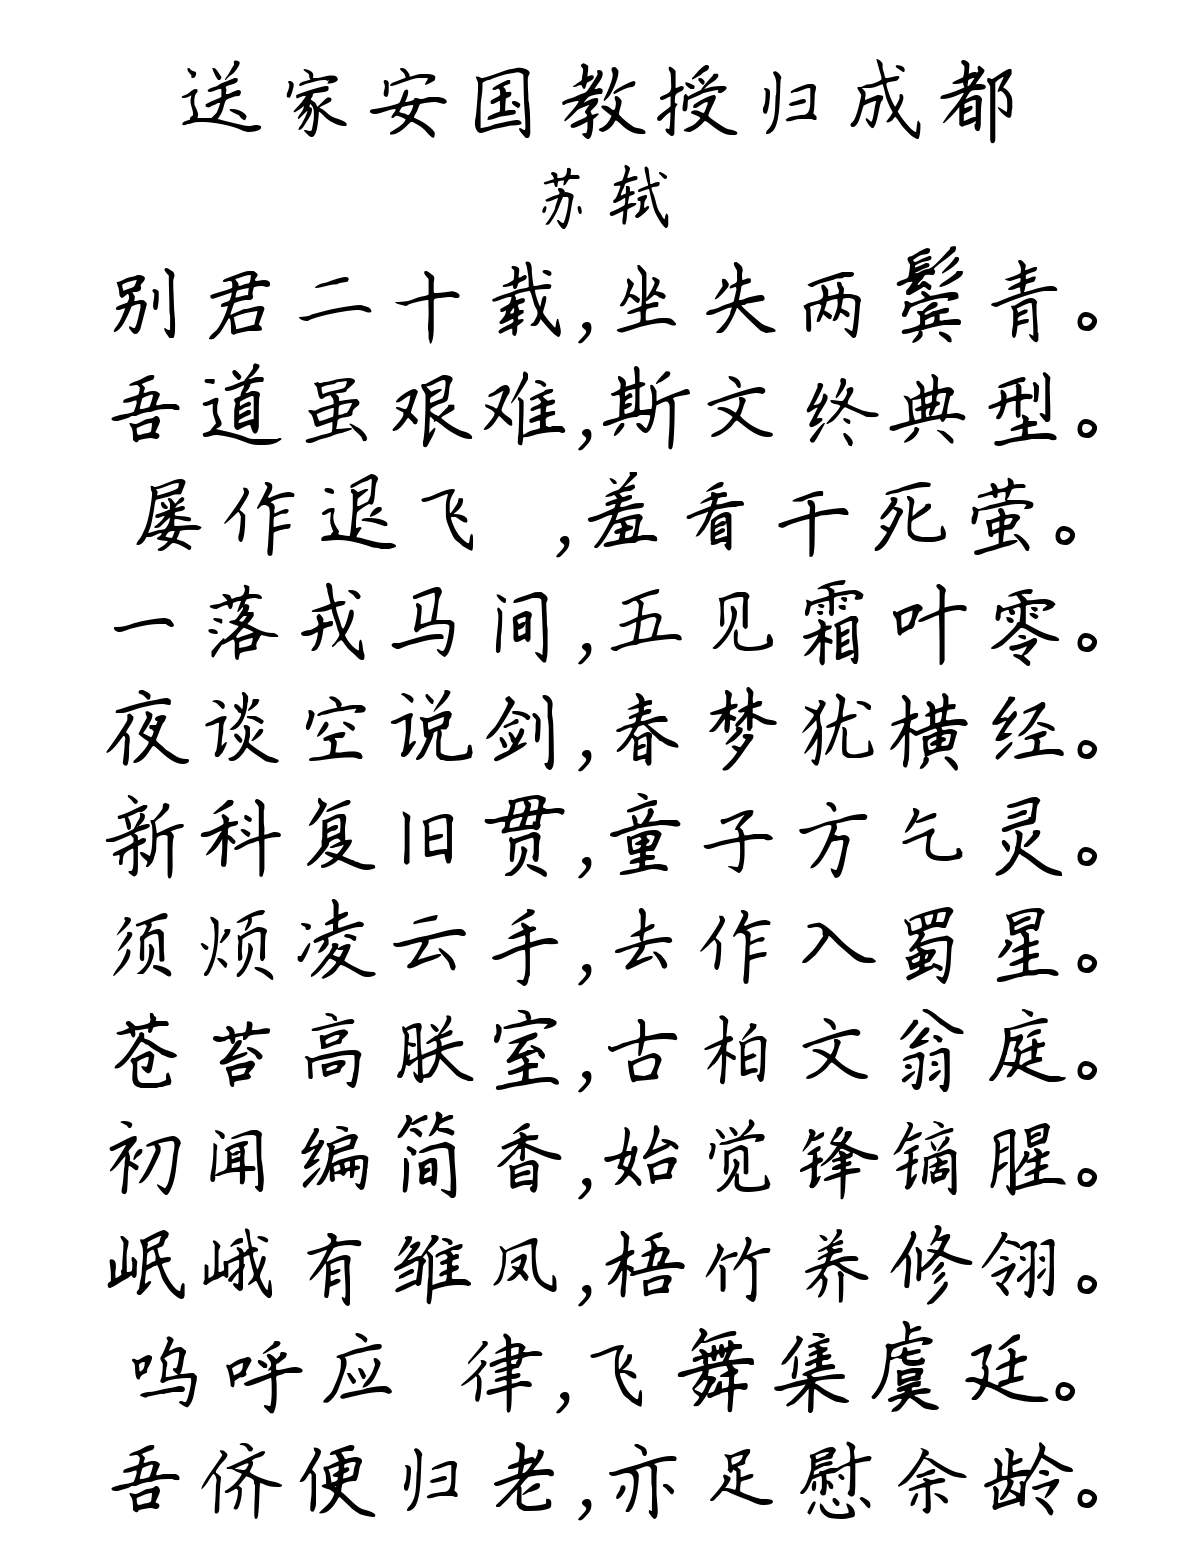 送家安国教授归成都
苏轼
别君二十载,坐失两鬓青。
吾道虽艰难,斯文终典型。
屡作退飞 ,羞看干死萤。
一落戎马间,五见霜叶零。
夜谈空说剑,春梦犹横经。
新科复旧贯,童子方乞灵。
须烦凌云手,去作入蜀星。
苍苔高朕室,古柏文翁庭。
初闻编简香,始觉锋镝腥。
岷峨有雏凤,梧竹养修翎。
呜呼应 律,飞舞集虞廷。
吾侪便归老,亦足慰余龄。